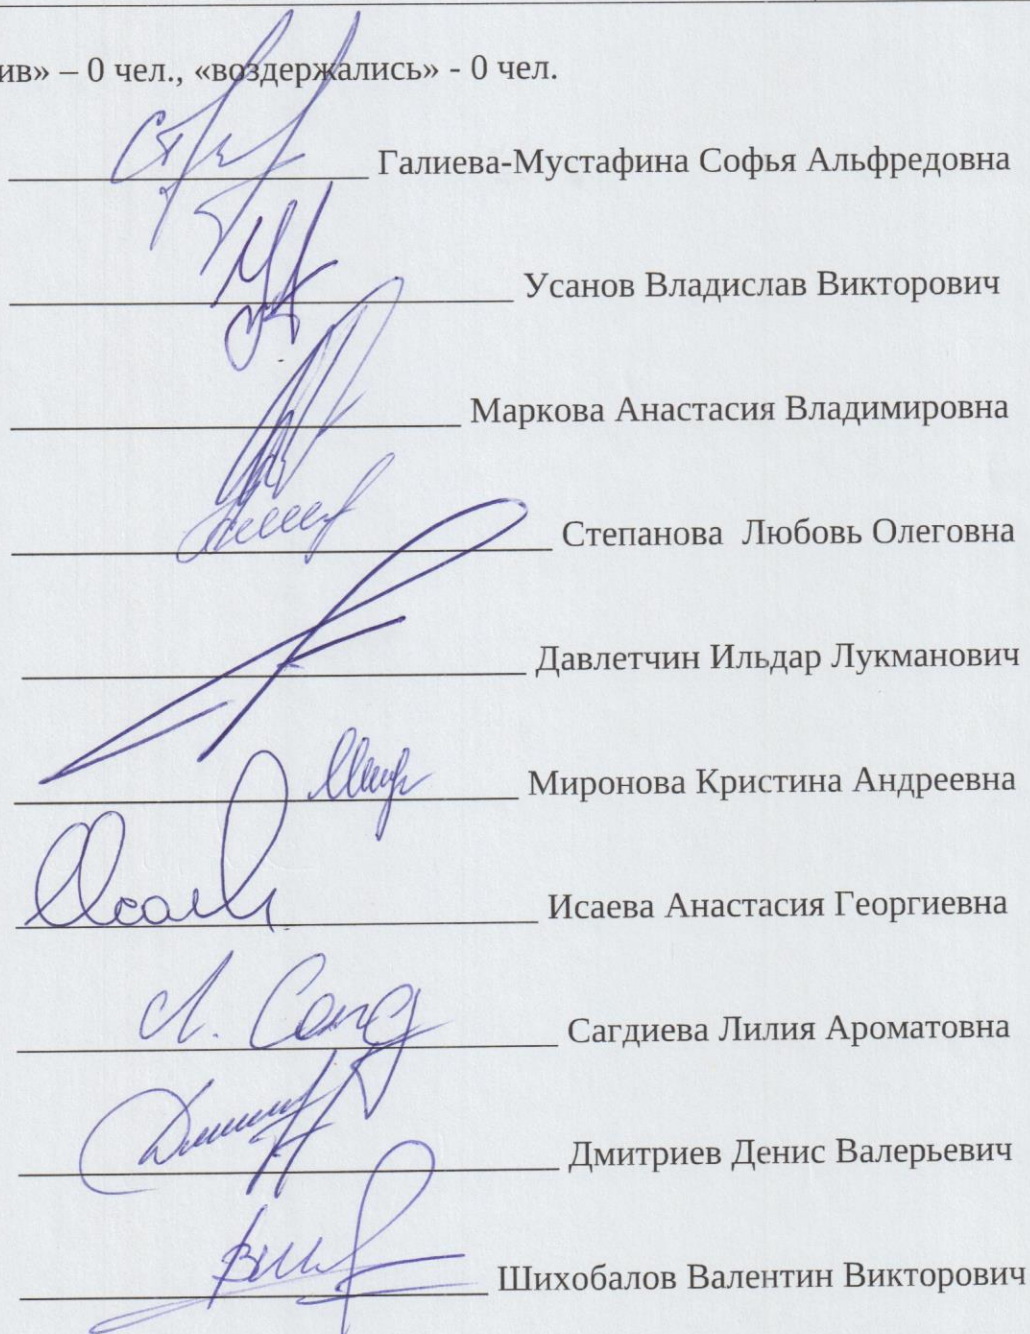 ив» – 0 чел., «воздержались» - 0 чел.
Галиева-Мустафина Софья Альфредовна
Усанов Владислав Викторович
Маркова Анастасия Владимировна
Степанова Любовь Олеговна
Давлетчин Ильдар Лукманович
Миронова Кристина Андреевна
Исаева Анастасия Георгиевна
Сагдиева Лилия Ароматовна
Дмитриев Денис Валерьевич
Шихобалов Валентин Викторович